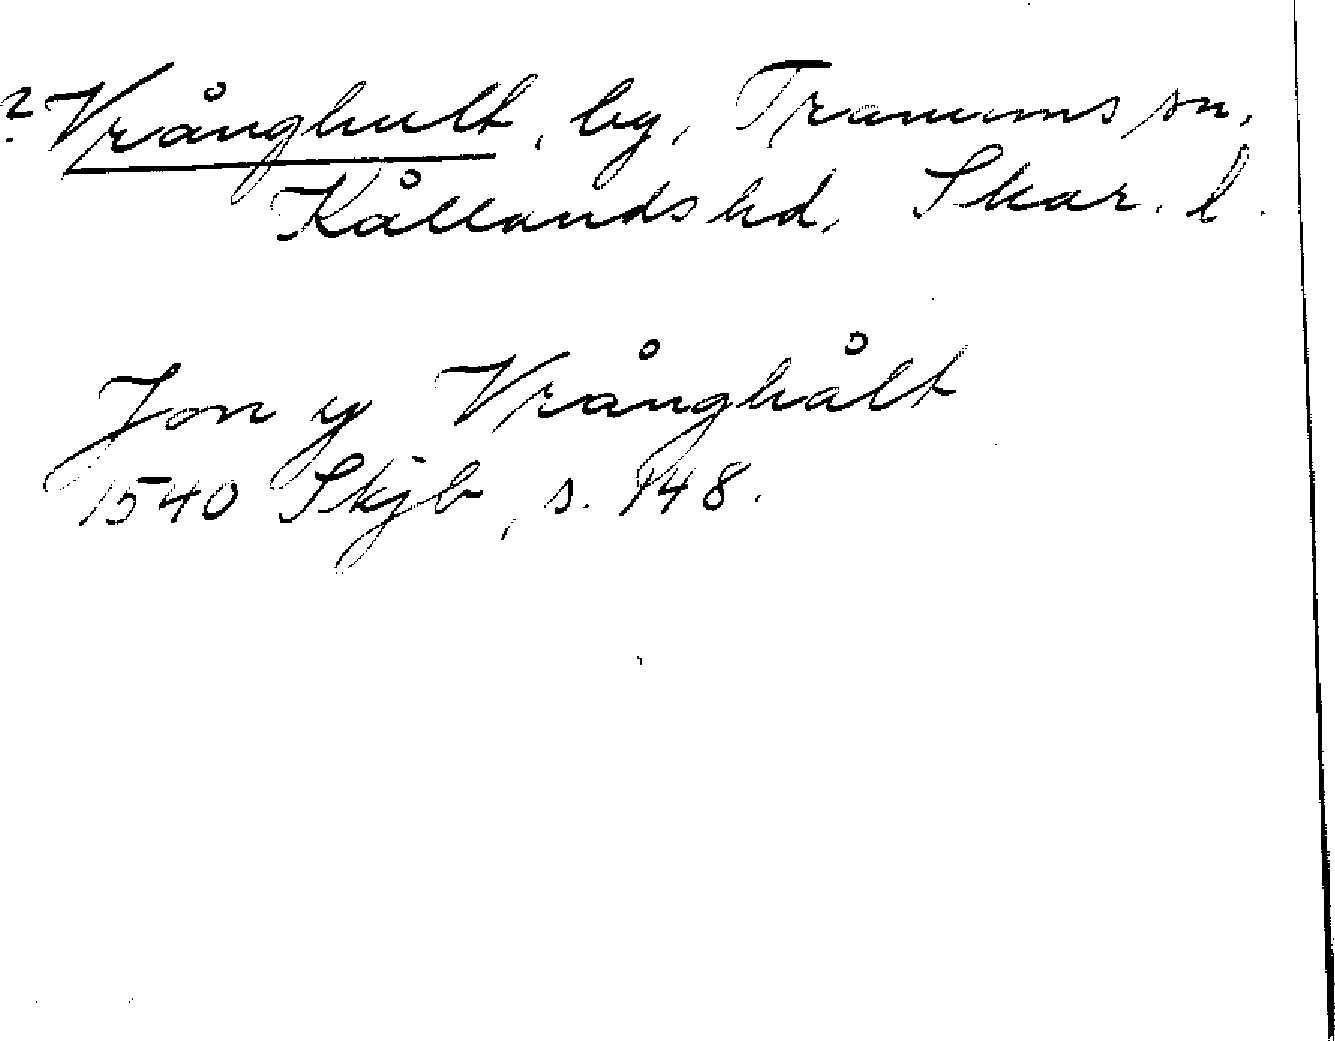 ? Vrånghult, by, Tranums sn,
Kållands hd, Skar. l.
Jon y Vrånghålt
1540 Skjb, s. 148.